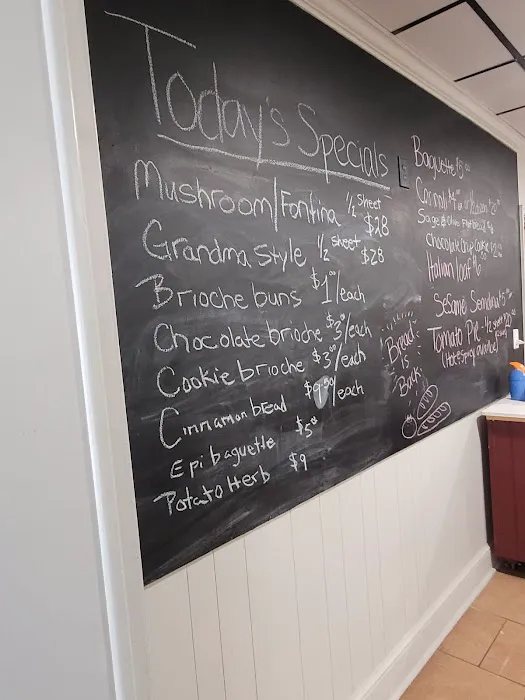 Today's Specials
Mushroom/Fontina 1/2 sheet $28
Grandma Style 1/2 sheet $28
Brioche buns $1.00/each
Chocolate brioche $3.00/each
Cookie brioche $3.00/each
Cinnamon bEad $9.50/each
Epi baguette $5.00
Potato Herb $9
Baguette $5.00
Cannoli $4.00 or 1/2 dozen $20.00
Sage & Olive
Chocolate Chip Cookie
Italian loaf
Sesame Semolina
Tomato Pie - 1/2
(Hot + Spicy available)
Bread
is
Back